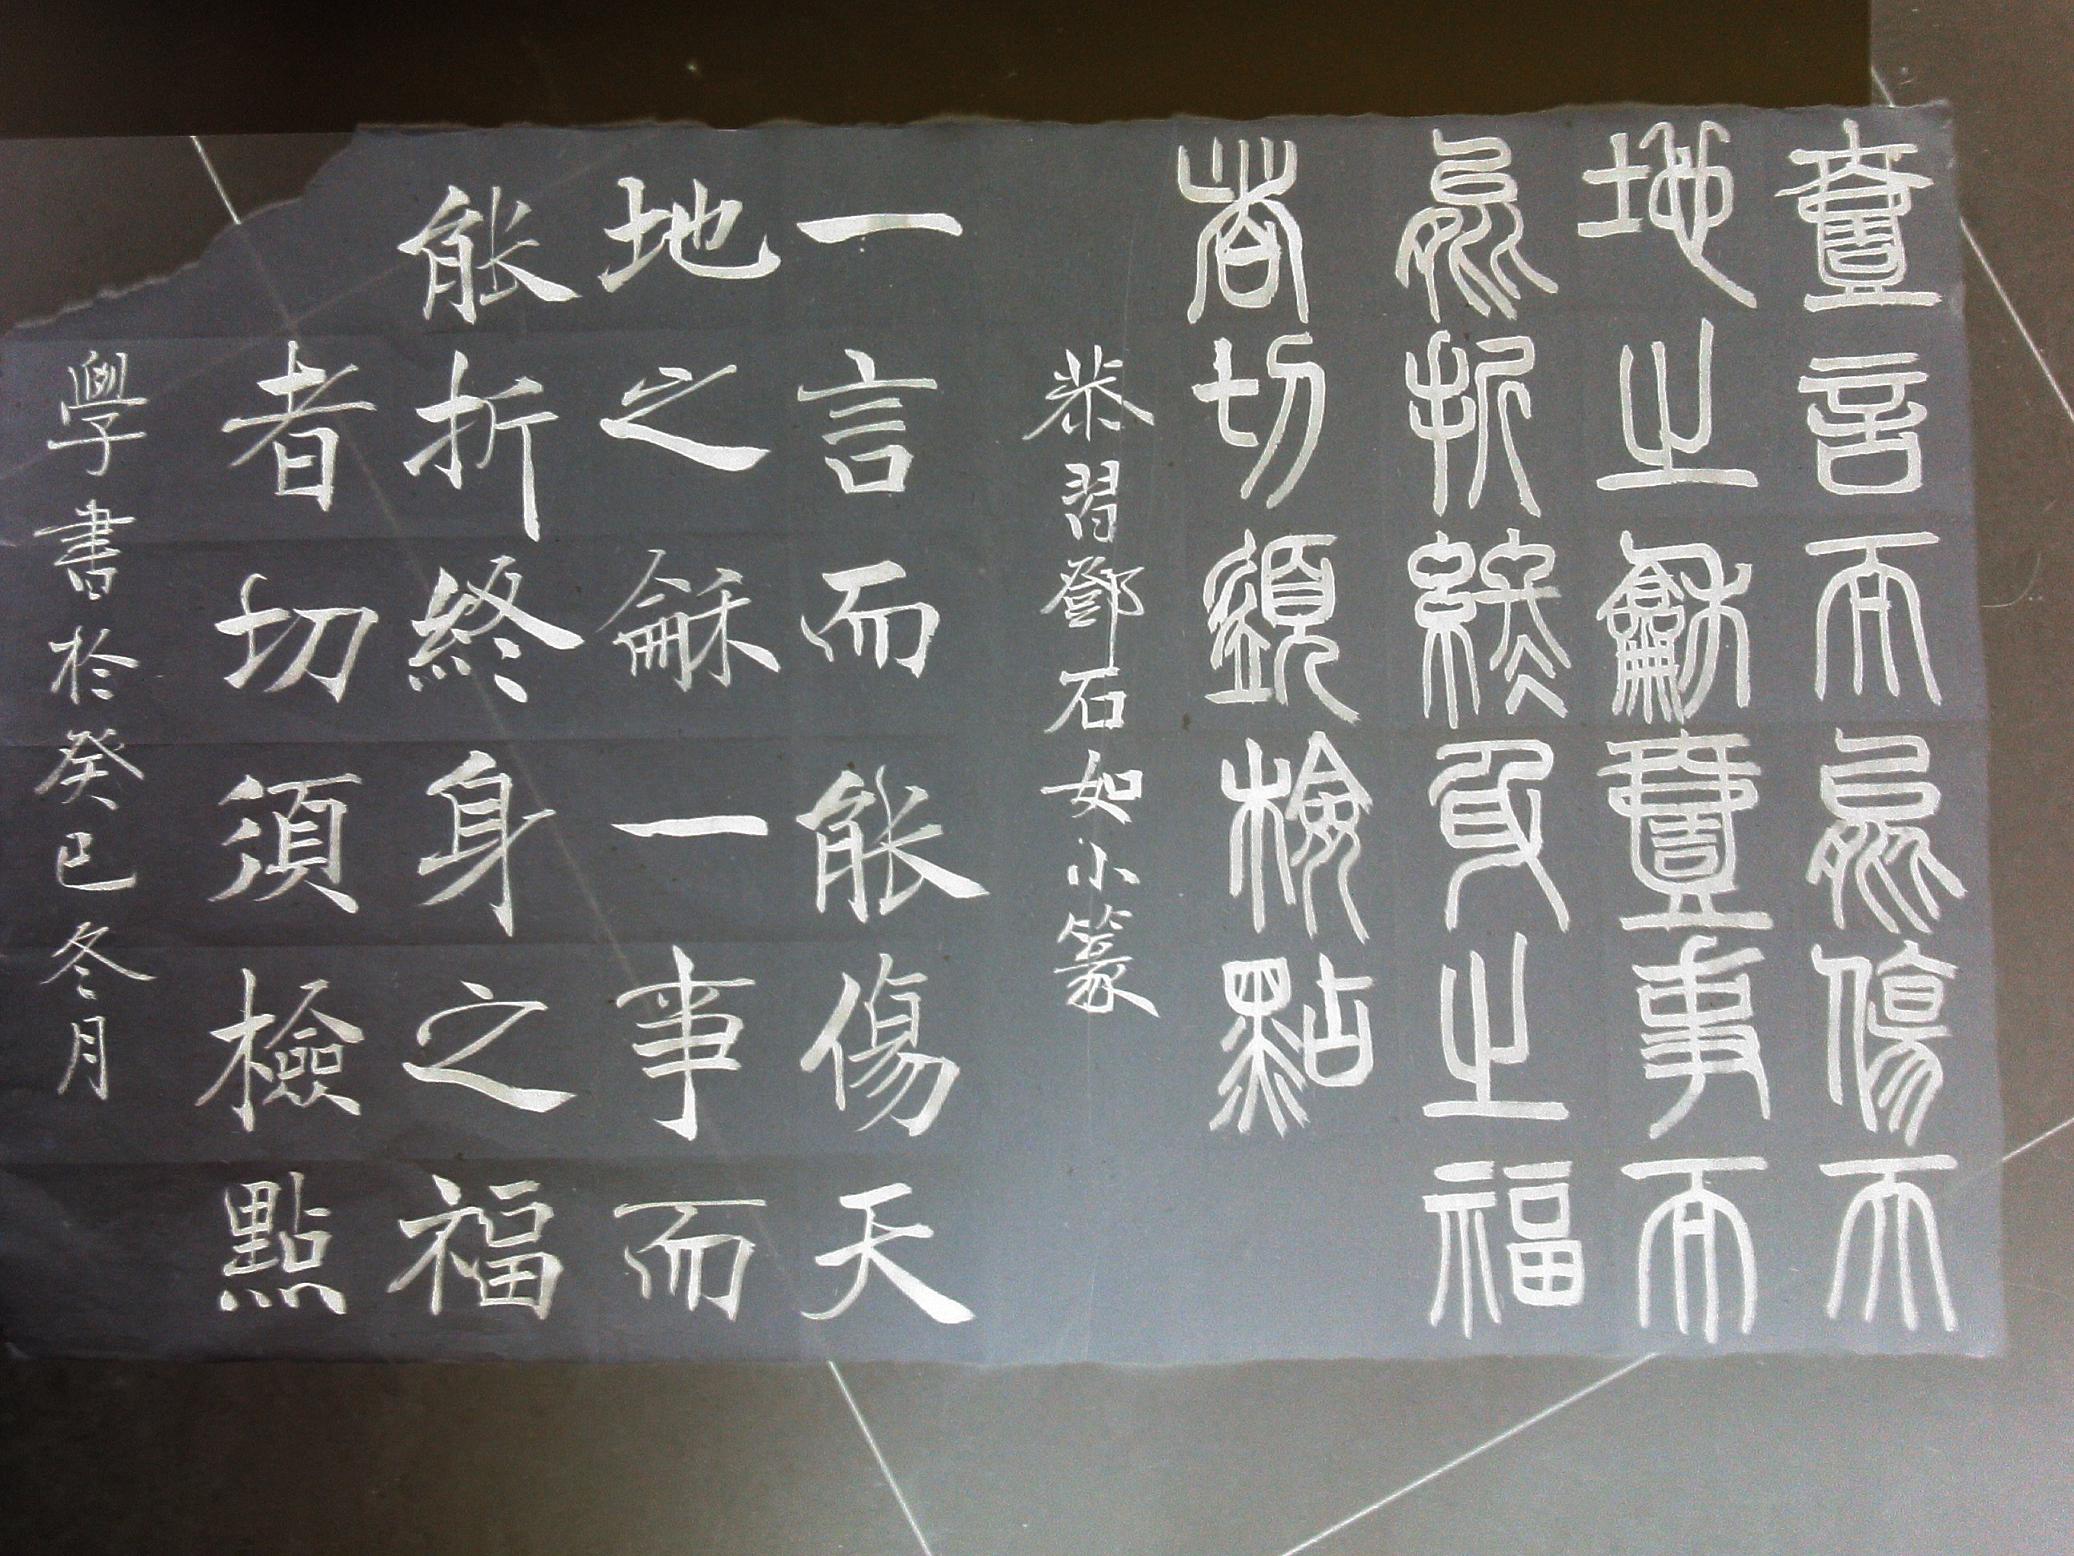 壹言而能傷天
地之龢壹事而
能折終身之福
者切須檢點
恭習鄧石如小篆
一言而能傷天
地之龢一事而
能折終身之福
者切須檢點
學書於癸巳冬月